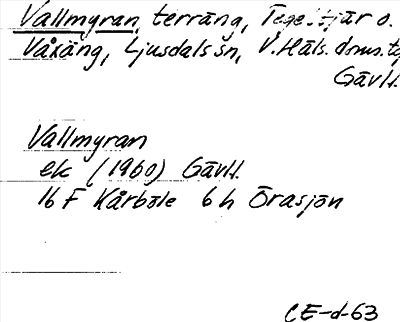 Vallmyran, terräng, Tege tjär o.
Våxäng, Ljusdals sn, V. Häls. doms.
Gävl.l.
Vallmyran
ek (1960) Gävl.l.
16 F Kårböle 6 h Örasjön
CE-d-63